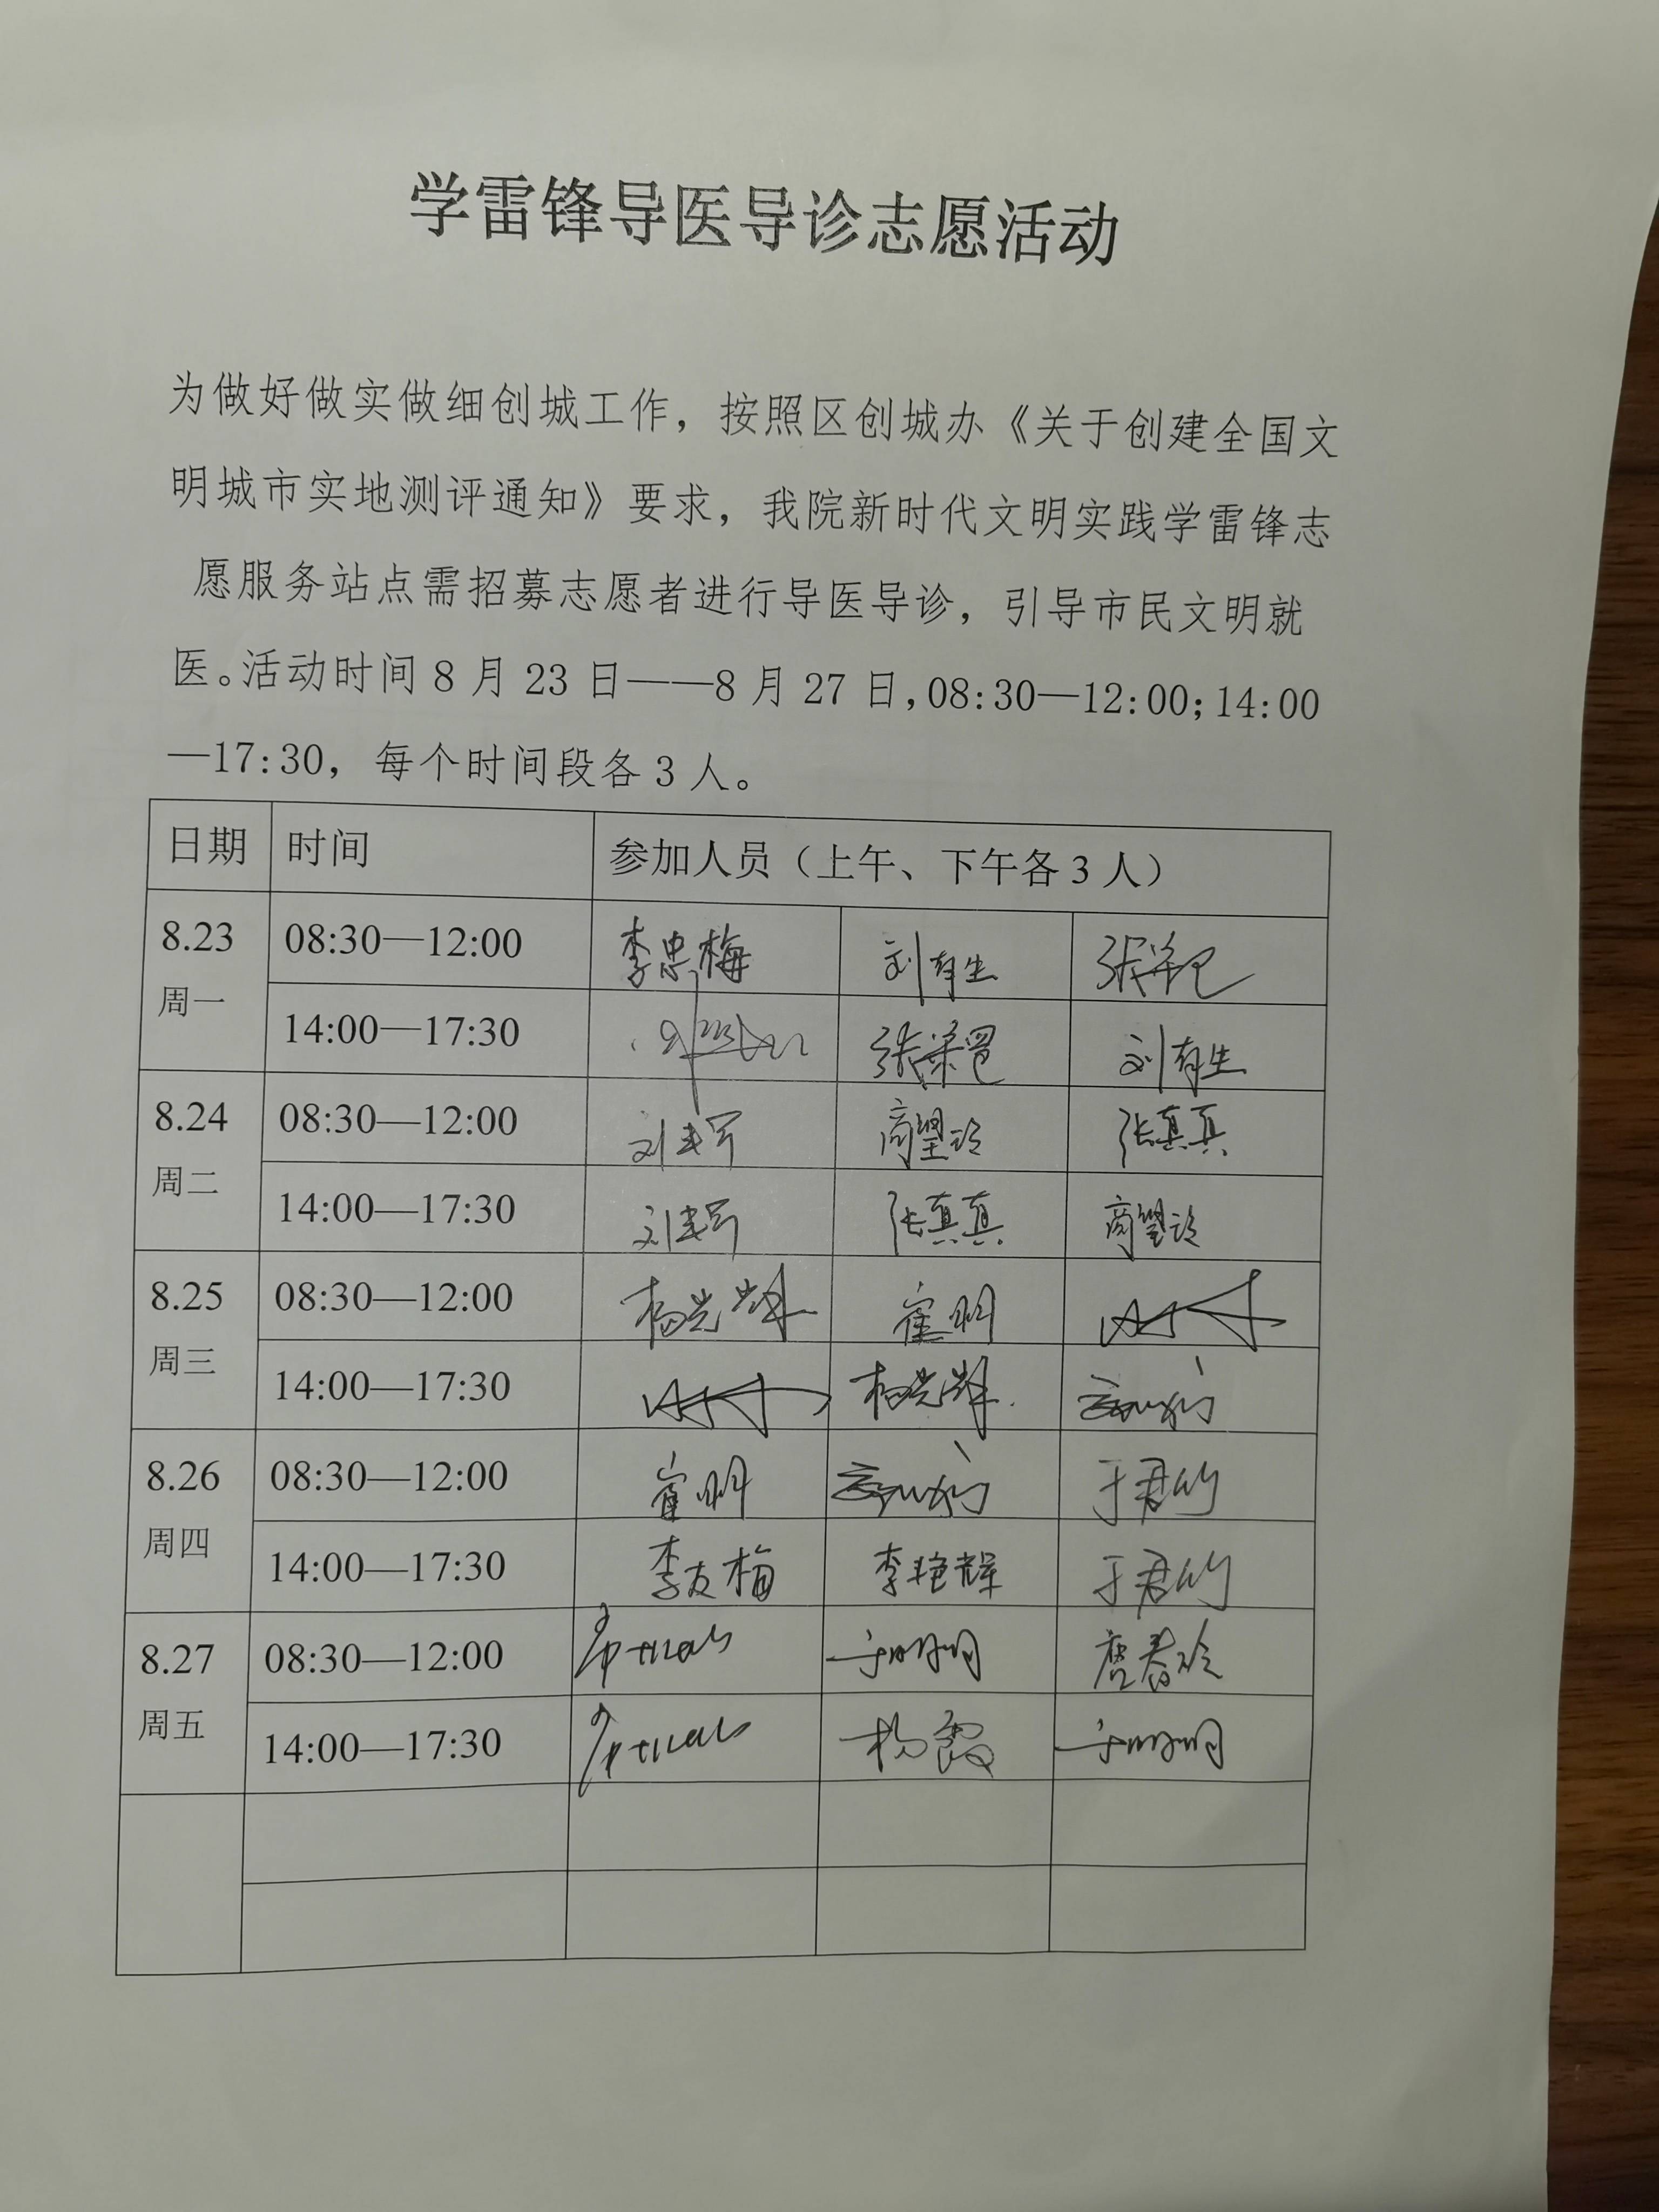 学雷锋导医导诊志愿活动
为做好做实做细创城工作，按照区创城办《关于创建全国文
明城市实地测评通知》要求，我院新时代文明实践学雷锋志
愿服务站点需招募志愿者进行导医导诊，引导市民文明就
医。活动时间8月23日——8月27日，08:30—12:00；14:00
—17:30，每个时间段各3人。
日期 时间 参加人员（上午、下午各3人）
8.23 08:30—12:00 李忠梅 刘有生
周一
14:00—17:30 刘有生
8.24 08:30—12:00 张真真
周二
14:00—17:30 张真真
8.25 08:30—12:00 杨光辉 崔明
周三
14:00—17:30 杨光辉
8.26 08:30—12:00 崔明 于君
周四
14:00—17:30 李友梅 李艳辉 于君
8.27 08:30—12:00 于明明 唐春玲
周五
14:00—17:30 杨霞 于明明